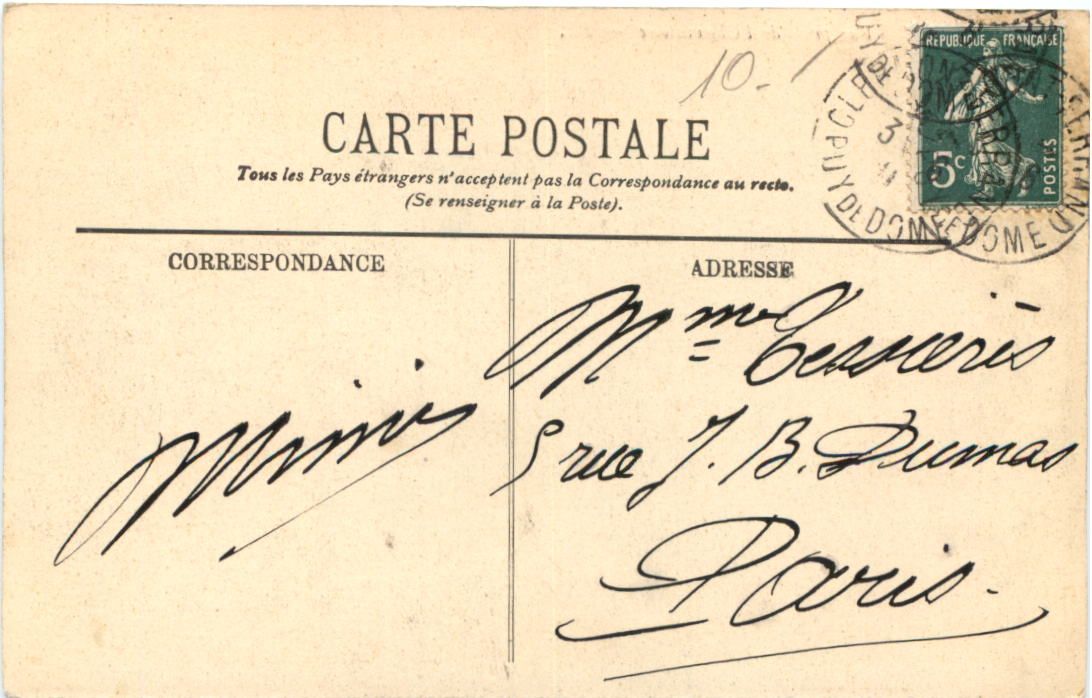 10.-
RÉPUBLIQUE FRANÇAISE
5c
POSTES
PUY DE DOME
CARTE POSTALE
Tous les Pays étrangers n'acceptent pas la Correspondance au recto.
(Se renseigner à la Poste).
CORRESPONDANCE
ADRESSE
Mme
5 rue J. B. Dumas
Paris.